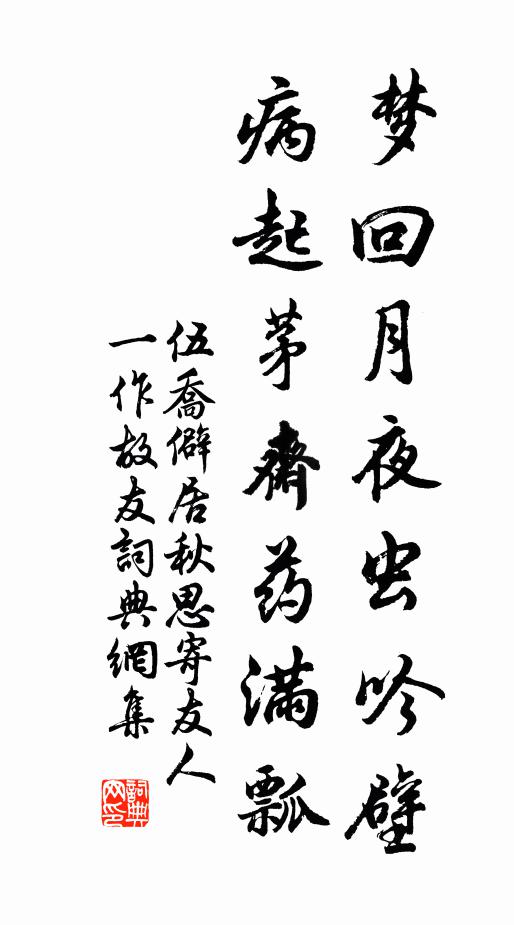 梦回月夜虫吟壁
病起茅斋药满瓢
伍喬僻居秋思寄友人
一作故友詞典網集
詞典網印